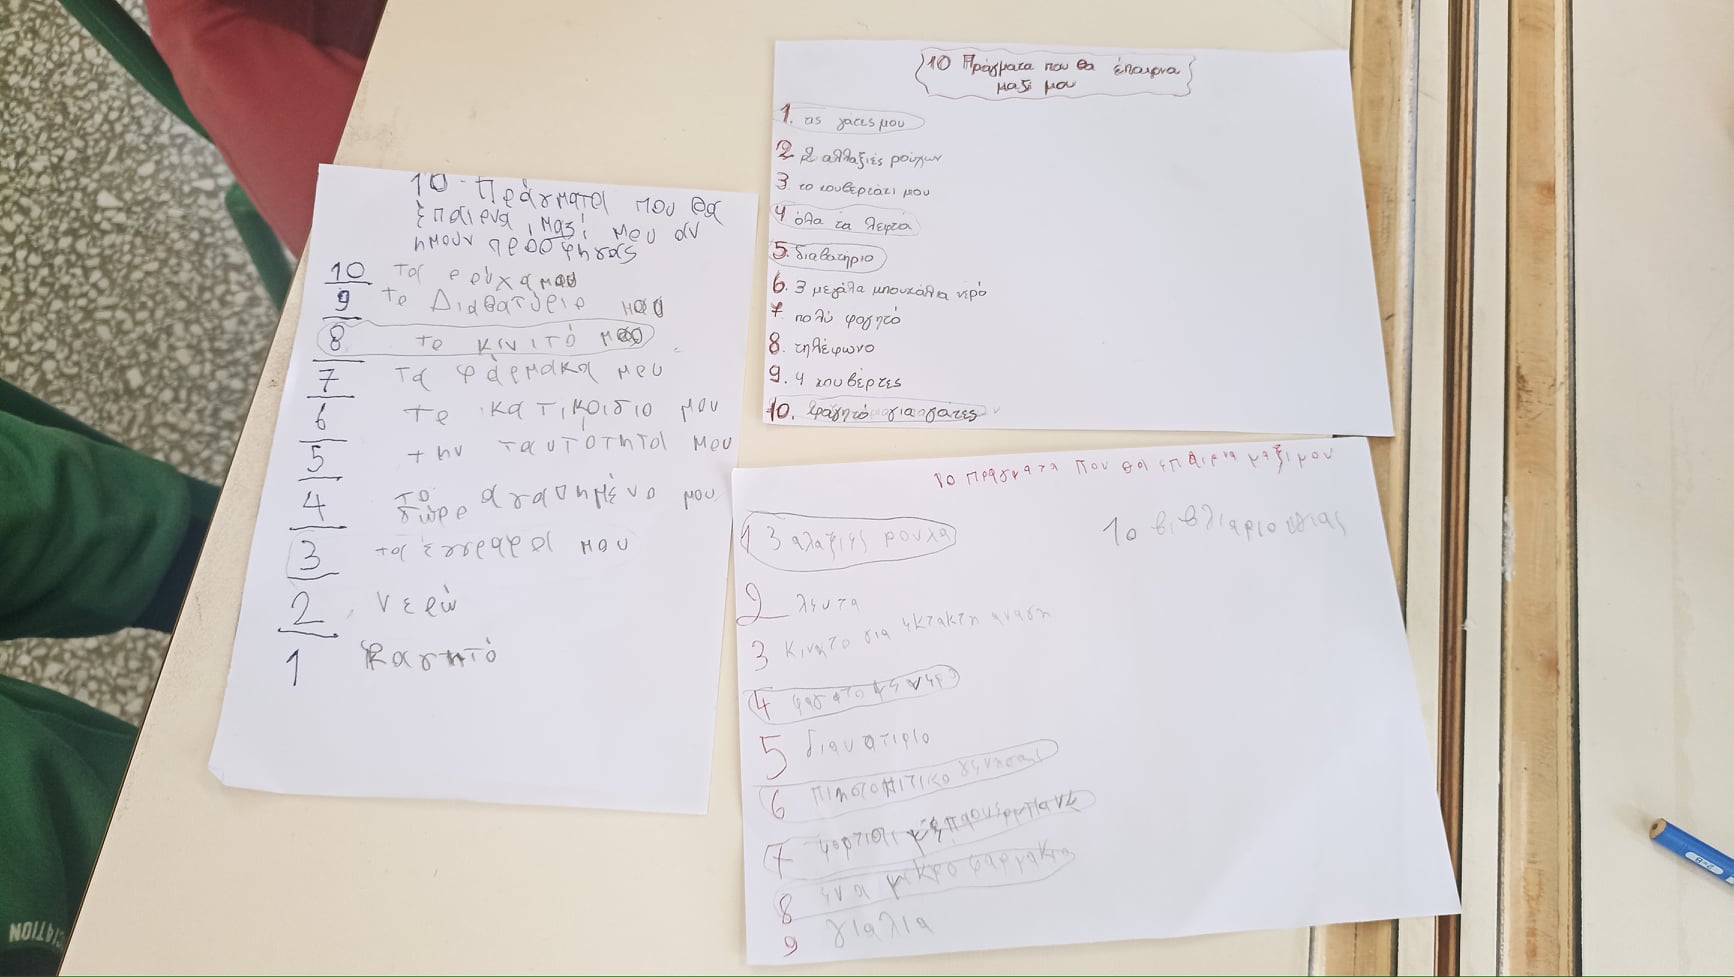 10 Πράγματα που θα
έπαιρνα μαζί μου αν
ήμουν πρόσφηγας
10 τα ρούχα μου
9 το Διαβατύριο μου
8 το κινιτό μου
7 τα φάρμακα μου
6 το κατικοιδιο μου
5 την ταυτότητα μου
4 το αγαπημένο μου
δώρο
3 τα έγγραφα μου
2 νερώ
1 φαγητό
10 Πράγματα που θα έπαιρνα
μαζί μου
1. τις γάτες μου
2 2 αλλαξιές ρούχων
3 το κουβερτάκι μου
4 όλα τα λεφτά
5. διαβατήριο
6. 3 μεγάλα μπουκάλια νερό
7. πολύ φαγητό
8. τηλέφωνο
9. 4 κουβέρτες
10. φαγητό για γάτες
10 πραγματα που θα επαιρνα μαζι μου
1 3 αλαξιές ρουχα
2 λευτα
3 κινητο για έκτακτη αναγκη
4 φαγητο κε νερο
5 διαυατιριο
6 πιηστοπιτικο γενησης
7 φορτιστι με παουερμπανκ
8 ενα μικρο φαρμακιο
9 γιαλια
10 βιβλιαριο υγιας
CIATION